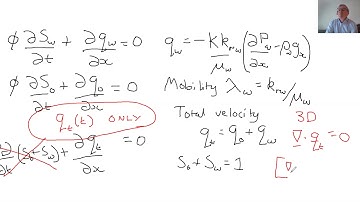 ϕ ∂S_w/∂t + ∂q_w/∂x = 0
ϕ ∂S_o/∂t + ∂q_o/∂x = 0
q_t(t) ONLY
∂/∂t (S_o + S_w) + ∂q_t/∂x = 0
q_w = -K k_rw/μ_w (∂P_w/∂x - ρ_w g_x)
Mobility λ_w = k_rw/μ_w
Total velocity
q_t = q_o + q_w
S_o + S_w = 1
3D
∇·q_t = 0
[∇